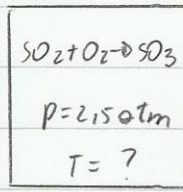 SO₂+O₂→SO₃
P=2,50atm
T= ?